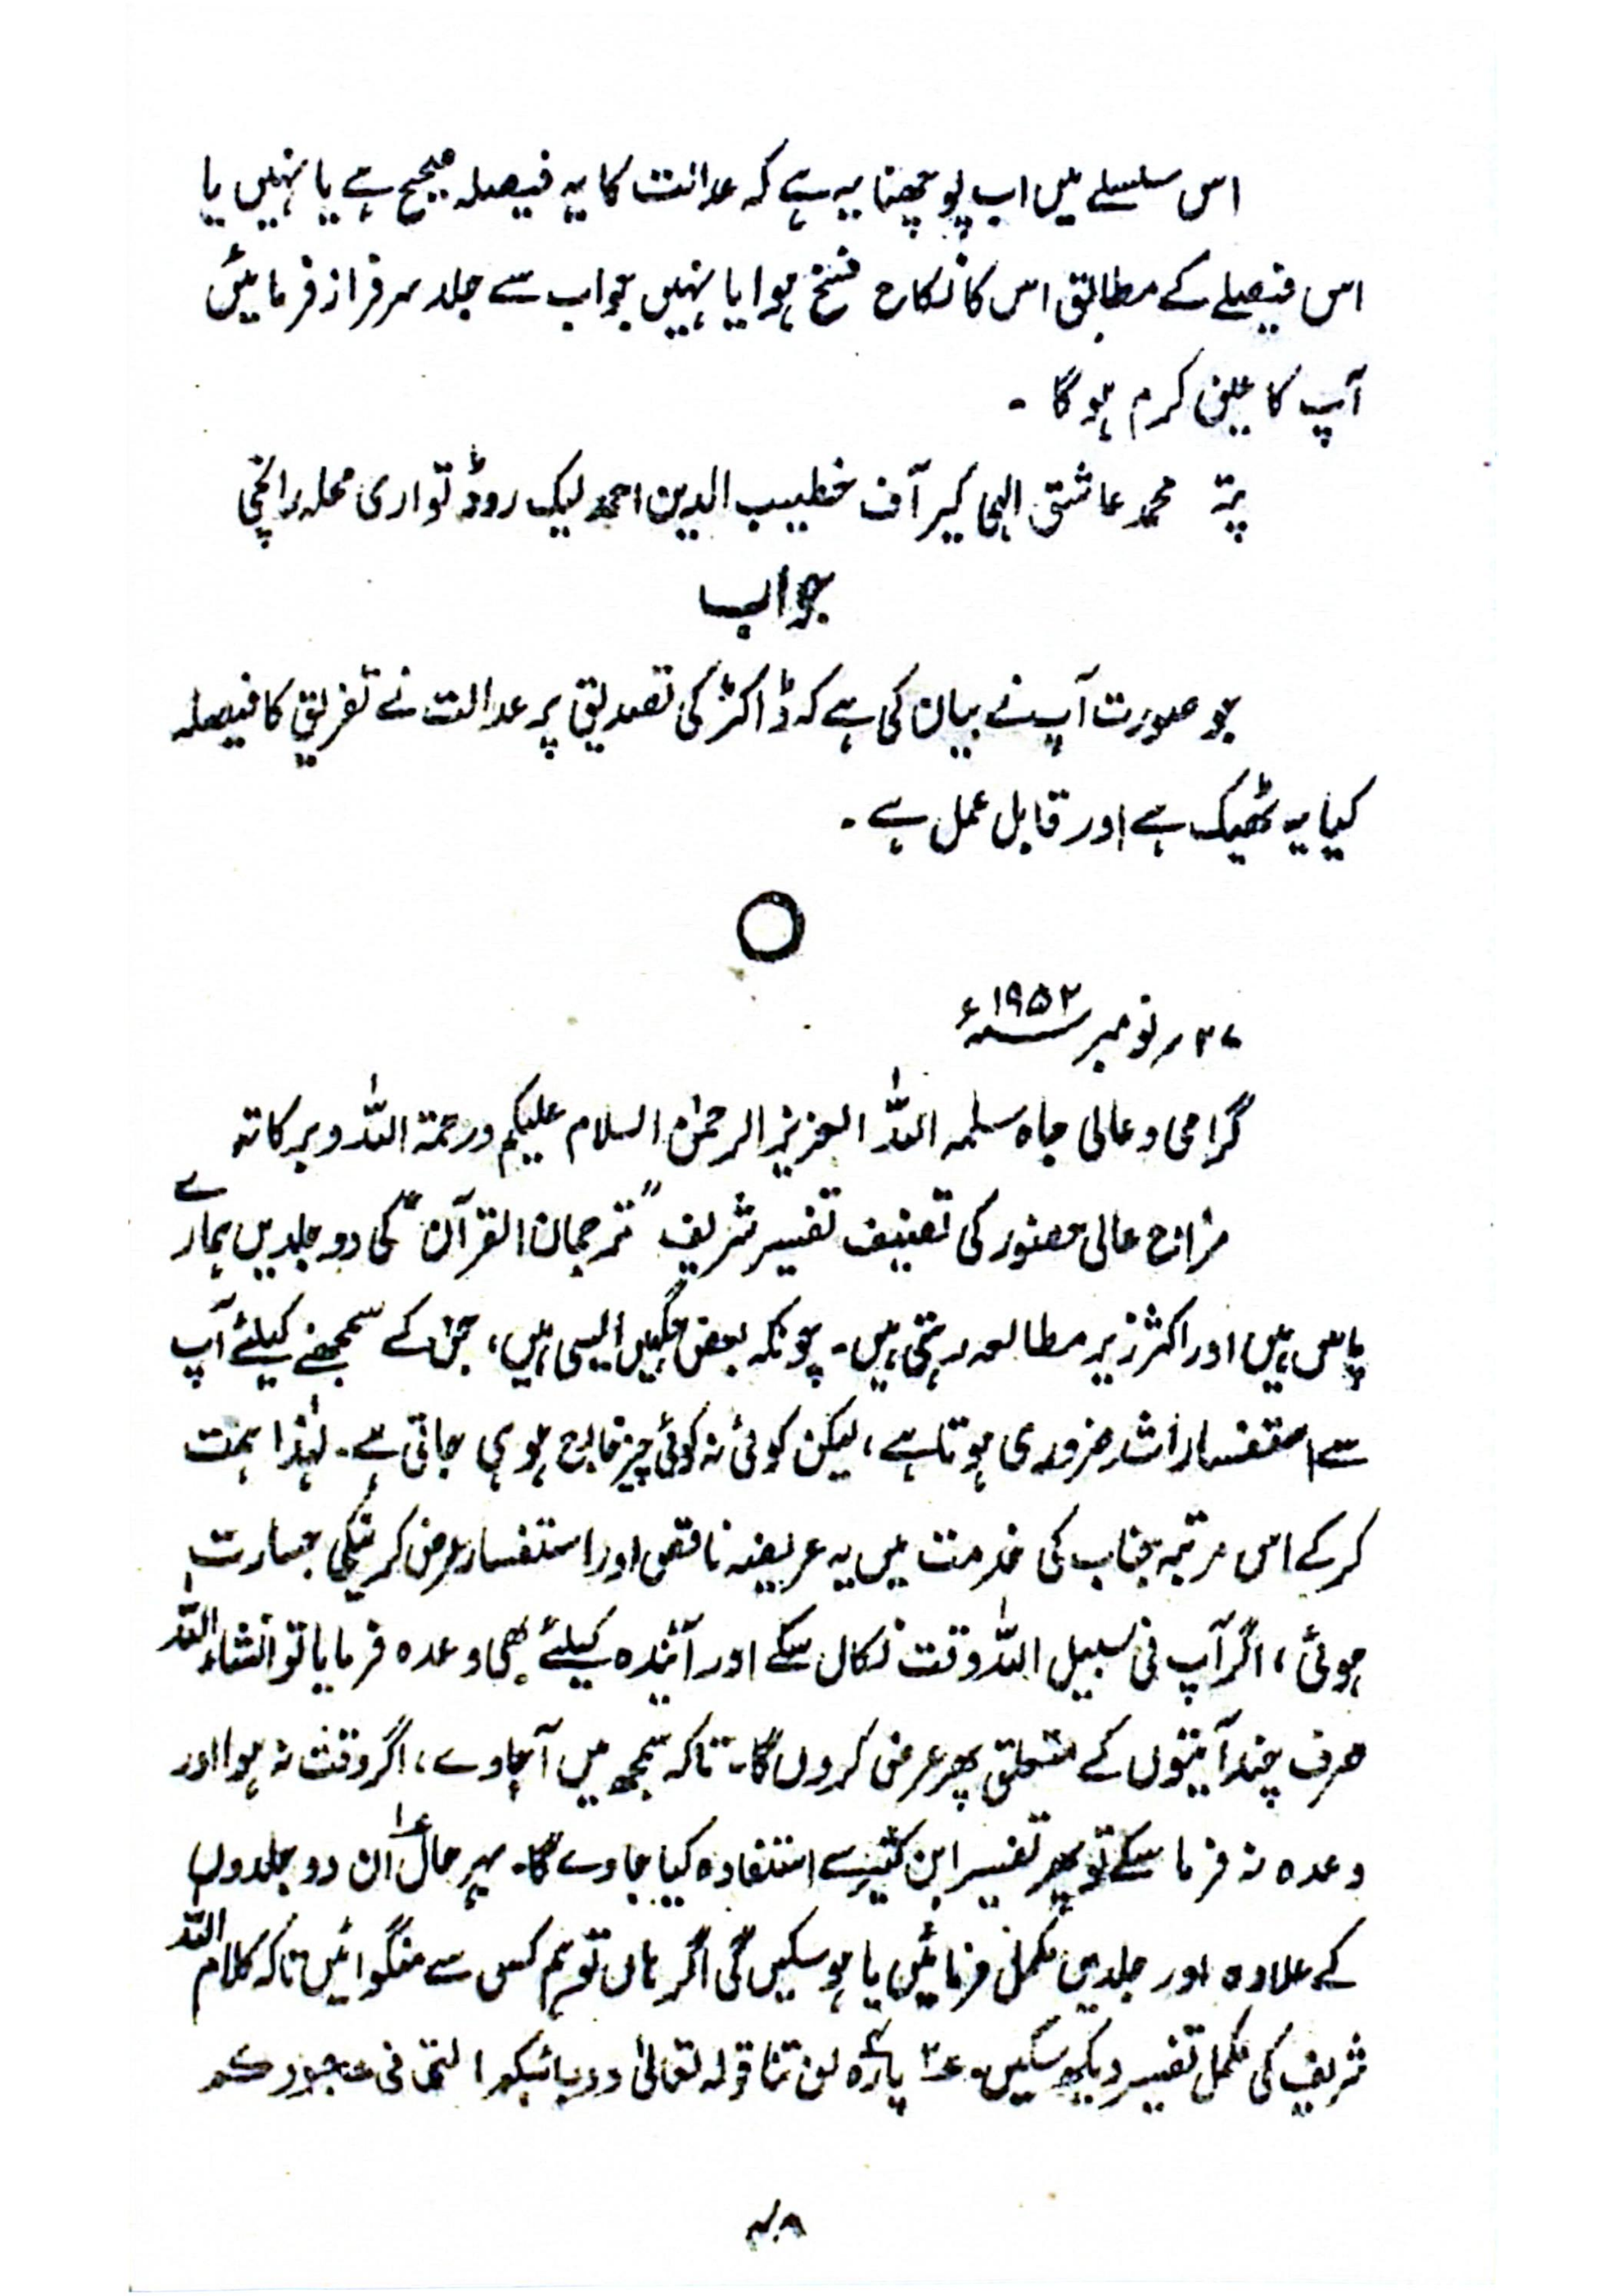 اس سلسلے میں اب پوچھنا یہ ہے کہ عدالت کا یہ فیصلہ صحیح ہے یا نہیں یا
اس فیصلے کے مطابق اس کا نکاح فسخ ہوا یا نہیں جواب سے جلد سرفراز فرمائیں
آپ کا عین کرم ہو گا ۔
پتہ محمد عاشق الہی کیر آف خطیب الدین احمد لیک روڈ تواری محلہ رانچی
جواب
جو صورت آپ نے بیان کی ہے کہ ڈاکٹر کی تصدیق پر عدالت نے تفریق کا فیصلہ
کیا یہ ٹھیک ہے اور قابل عمل ہے ۔
نومبر ۱۹۵۲ء
گرامی و عالی جاہ سلمہ اللہ العزیز الرحمٰن السلام علیکم ورحمۃ اللہ وبرکاتہ
مزاج عالی حضور کی تصنیف تفسیر شریف "ترجمان القرآن" کی دو جلدیں ہمارے
پاس ہیں اور اکثر زیر مطالعہ رہتی ہیں۔ چونکہ بعض جگہیں ایسی ہیں، جن کے سمجھنے کیلئے آپ
سے استفسارات ضروری ہوتا ہے، لیکن کوئی نہ کوئی چیز خارج ہو ہی جاتی ہے۔ لہٰذا ہمت
کر کے اس مرتبہ جناب کی خدمت میں یہ عریضہ ناقص اور استفسار عرض کرنیکی جسارت
ہوئی، اگر آپ فی سبیل اللہ وقت نکال سکے اور آئندہ کیلئے بھی وعدہ فرمایا تو انشاء اللہ
صرف چند آیتوں کے متعلق پھر عرض کروں گا۔ تاکہ سمجھ میں آ جاوے، اگر وقت نہ ہوا اور
وعدہ نہ فرما سکے تو پھر تفسیر ابن کثیر سے استفادہ کیا جاوے گا۔ بہرحال ۱؎ ان دو جلدوں
کے علاوہ اور جلدیں مکمل فرمائیں یا ہو سکیں گی اگر ہاں تو ہم کس سے منگوائیں تاکہ کلام اللہ
شریف کی مکمل تفسیر دیکھ سکیں۔ ۲؎ پارہ لن تنا قولہ تعالیٰ وربائبکم التی فی حجورکم